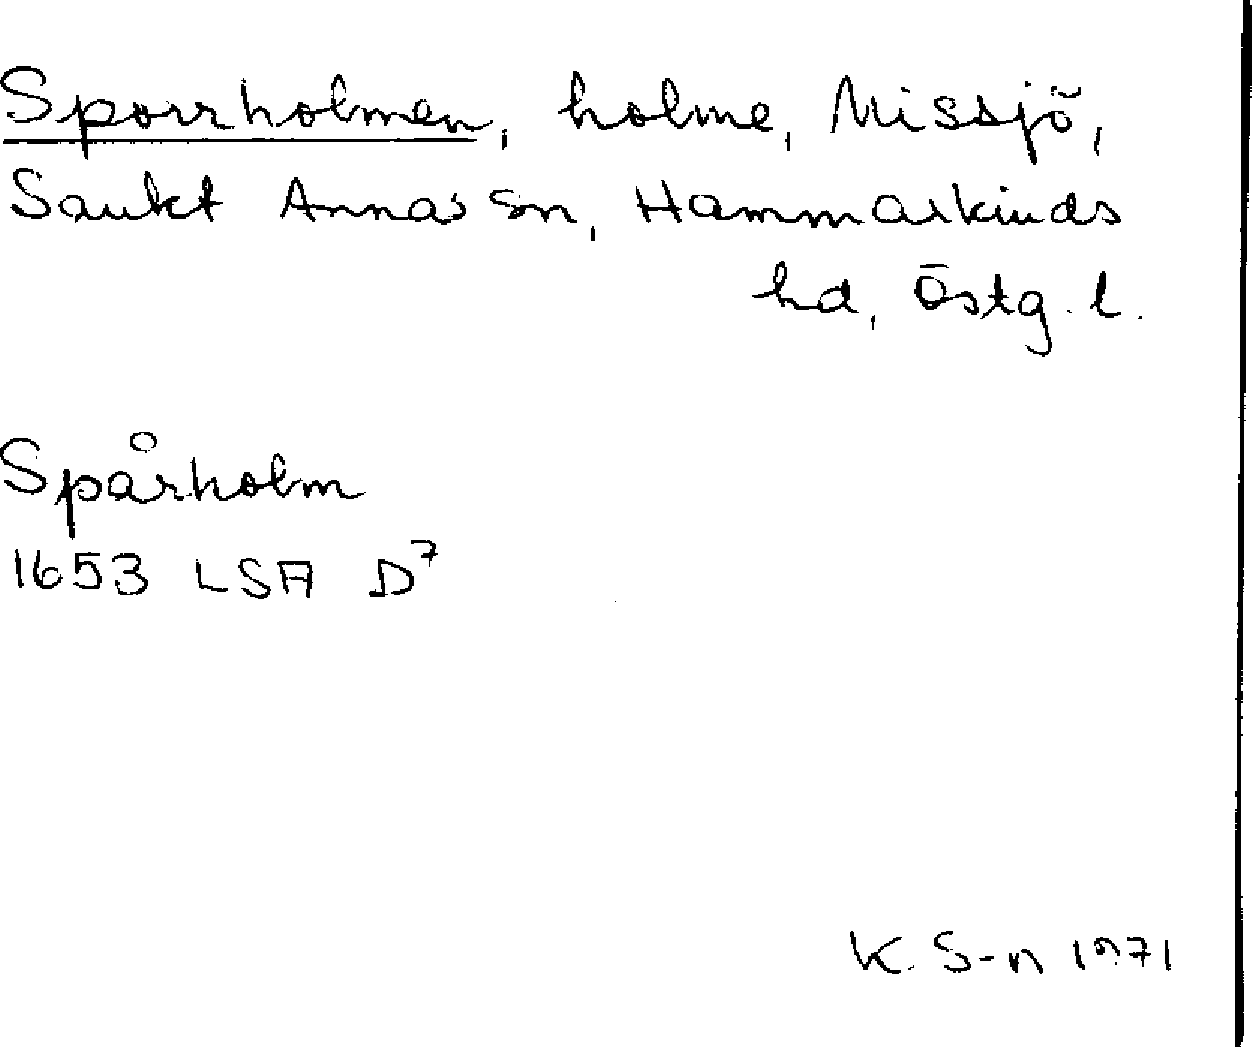 Sporrholmen, holme, Missjö,
Sankt Annas sn, Hammarkinds
hd, Östg. l.
Spårholm
1653 LSA D7
K. S-n 1971